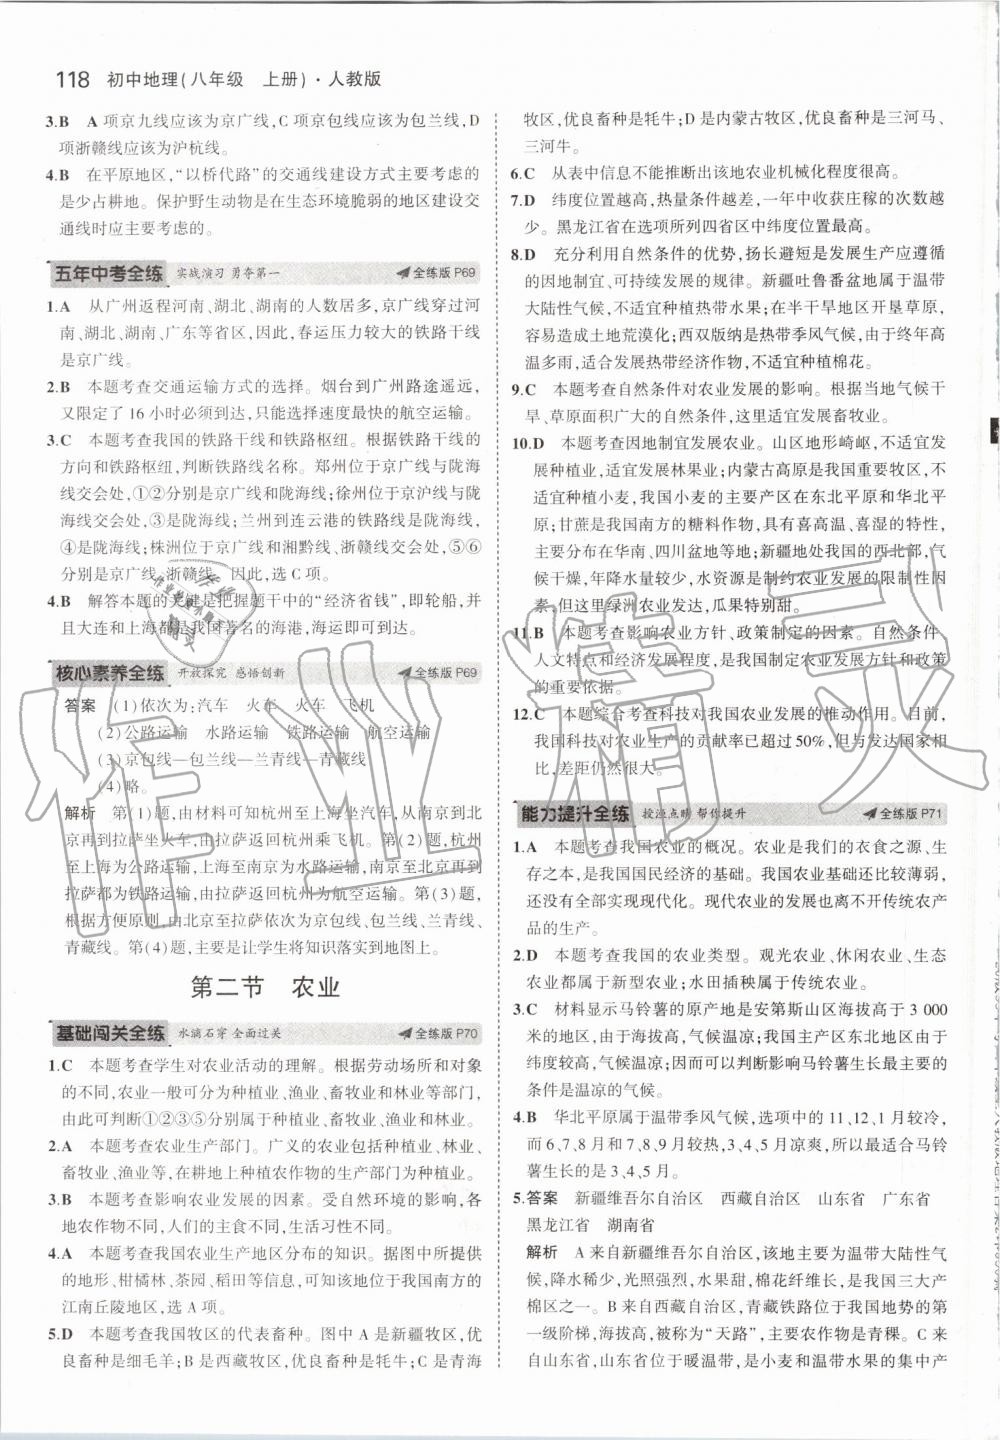 118 初中地理(八年级 上册)·人教版
3.B A 项京九线应该为京广线,C 项京包线应为包兰线,D
项浙赣线应该为沪杭线。
4.B 在平原地区,“以桥代路”的交通线建设方式主要考虑的
是少占耕地。保护野生动物是在生态环境脆弱的地区建设交
通线时应主要考虑的。
五年中考全练 实战演习 勇夺第一 全练版 P69
1.A 从广州返程河南、湖北、湖南的人数居多,京广线穿过河
南、湖北、湖南、广东等省区,因此,春运压力较大的铁路干线
是京广线。
2.B 本题考查交通运输方式的选择。烟台到广州路途遥远,
又限定了 16 小时必须到达,只能选择速度最快的航空运输。
3.C 本题考查我国的铁路干线和铁路枢纽。根据铁路干线的
方向和铁路枢纽,判断铁路线名称。郑州位于京广线与陇海
线交会处,①②分别是京广线和陇海线;徐州位于京沪线与陇
海线交会处,③是陇海线;兰州到连云港的铁路线是陇海线,
④是陇海线;株洲位于京广线和湘黔线、浙赣线交会处,⑤⑥
分别是京广线、浙赣线。因此,选 C 项。
4.B 解答本题的关键是把握题干中的“经济省钱”,即轮船,并
且大连和上海都是我国著名的海港,海运即可到达。
核心素养全练 开放探究 感悟创新 全练版 P69
答案 (1)依次为:汽车 火车 火车 飞机
(2)公路运输 水路运输 铁路运输 航空运输
(3)京包线—包兰线—兰青线—青藏线
(4)略。
解析 第(1)题,由材料可知杭州至上海坐汽车,从南京到北
京再到拉萨坐火车,由拉萨返回杭州乘飞机。第(2)题,杭州
至上海为公路运输,上海至南京为水路运输,南京到北京再到
拉萨都为铁路运输,由拉萨返回杭州为航空运输。第(3)题,
根据方便原则,由北京至拉萨依次为京包线、包兰线、兰青线、
青藏线。第(4)题,主要是让学生将知识落实到地图上。
第二节 农业
基础闯关全练 水滴石穿 全面过关 全练版 P70
1.C 本题考查学生对农业活动的理解。根据劳动场所和对象
的不同,农业一般可分为种植业、渔业、畜牧业和林业等部门,
由此可判断①②③⑤分别属于种植业、畜牧业、渔业和林业。
2.A 本题考查农业生产部门。广义的农业包括种植业、林业、
畜牧业、渔业等,在耕地上种植农作物的属于种植业。
3.B 本题考查影响农业发展的因素。受自然环境的影响,各
地农作物不同,人们的主食不同,生活习性不同。
4.A 本题考查我国农业生产地区分布的知识。据图中所提供
的地形、柑橘林、茶园、稻田等信息,可推断该地位于我国南方的
江南丘陵地区,选 A 项。
5.D 本题考查我国牧区的代表畜种。图中 A 是新疆牧区,优
良畜种是细毛羊;B 是西藏牧区,优良畜种是牦牛;C 是青海
牧区,优良畜种是牦牛;D 是内蒙古牧区,优良畜种是三河马、
三河牛。
6.C 从表中信息不能推断出该地农业机械化程度很高。
7.D 纬度位置越高,热量条件越差,一年中收获庄稼的次数越
少。黑龙江省在选项所列四省区中纬度位置最高。
8.D 充分利用自然条件的优势,扬长避短是发展生产应遵循
的因地制宜、可持续发展的规律。新疆吐鲁番盆地属于温带
大陆性气候,不适宜种植热带水果;在半干旱地区开垦草原,
容易造成土地荒漠化;西双版纳是热带季风气候,由于终年高
温多雨,适合发展热带经济作物,不适宜种植棉花。
9.C 本题考查自然条件对农业发展的影响。根据当地气候干
旱、草原面积广大的自然条件,这里适宜发展畜牧业。
10.D 本题考查因地制宜发展农业。山区地形崎岖,不适宜发
展种植业,适宜发展林果业;内蒙古高原是我国重要牧区,不
适宜种植小麦,我国小麦的主要产区在东北平原和华北平
原;甘蔗是我国南方的糖料作物,具有喜高温、喜湿的特性,
主要分布在华南、四川盆地等地;新疆地处我国的西北部,气
候干燥,年降水量较少,水资源是制约农业发展的限制性因
素,但这里绿洲农业发达,瓜果特别甜。
11.B 本题考查影响农业方针、政策制定的因素。自然条件、
人文特点和经济发展程度,是我国制定农业发展方针和政策
的重要依据。
12.C 本题综合考查科技对我国农业发展的推动作用。目前,
我国科技对农业生产的贡献率已超过 50%,但与发达国家相
比,差距仍然很大。
能力提升全练 授渔点睛 帮你提升 全练版 P71
1.A 本题考查我国农业的概况。农业是我们的衣食之源、生
存之本,是我国国民经济的基础。我国农业基础还比较薄弱,
还没有全部实现现代化。现代农业的发展也离不开传统农产
品的生产。
2.D 本题考查我国的农业类型。观光农业、休闲农业、生态
农业都属于新型农业;水田插秧属于传统农业。
3.C 材料显示马铃薯的原产地是安第斯山区海拔高于 3 000
米的地区,由于海拔高,气候温凉;我国主产区东北地区由于
纬度较高,气候温凉;因而可以判断影响马铃薯生长最主要的
条件是温凉的气候。
4.B 华北平原属于温带季风气候,选项中的 11、12、1 月较冷,
而 6、7、8 月和 7、8、9 月较热,3、4、5 月凉爽,所以最适合马铃
薯生长的是 3、4、5 月。
5.答案 新疆维吾尔自治区 西藏自治区 山东省 广东省
黑龙江省 湖南省
解析 A 来自新疆维吾尔自治区,该地主要为温带大陆性气
候,降水稀少,光照强烈,水果甜,棉花纤维长,是我国三大产
棉区之一。B 来自西藏自治区,青藏铁路位于我国地势的第
一级阶梯,海拔高,被称为“天路”,主要农作物是青稞。C 来
自山东省,山东省位于暖温带,是小麦和温带水果的集中产
作业精灵